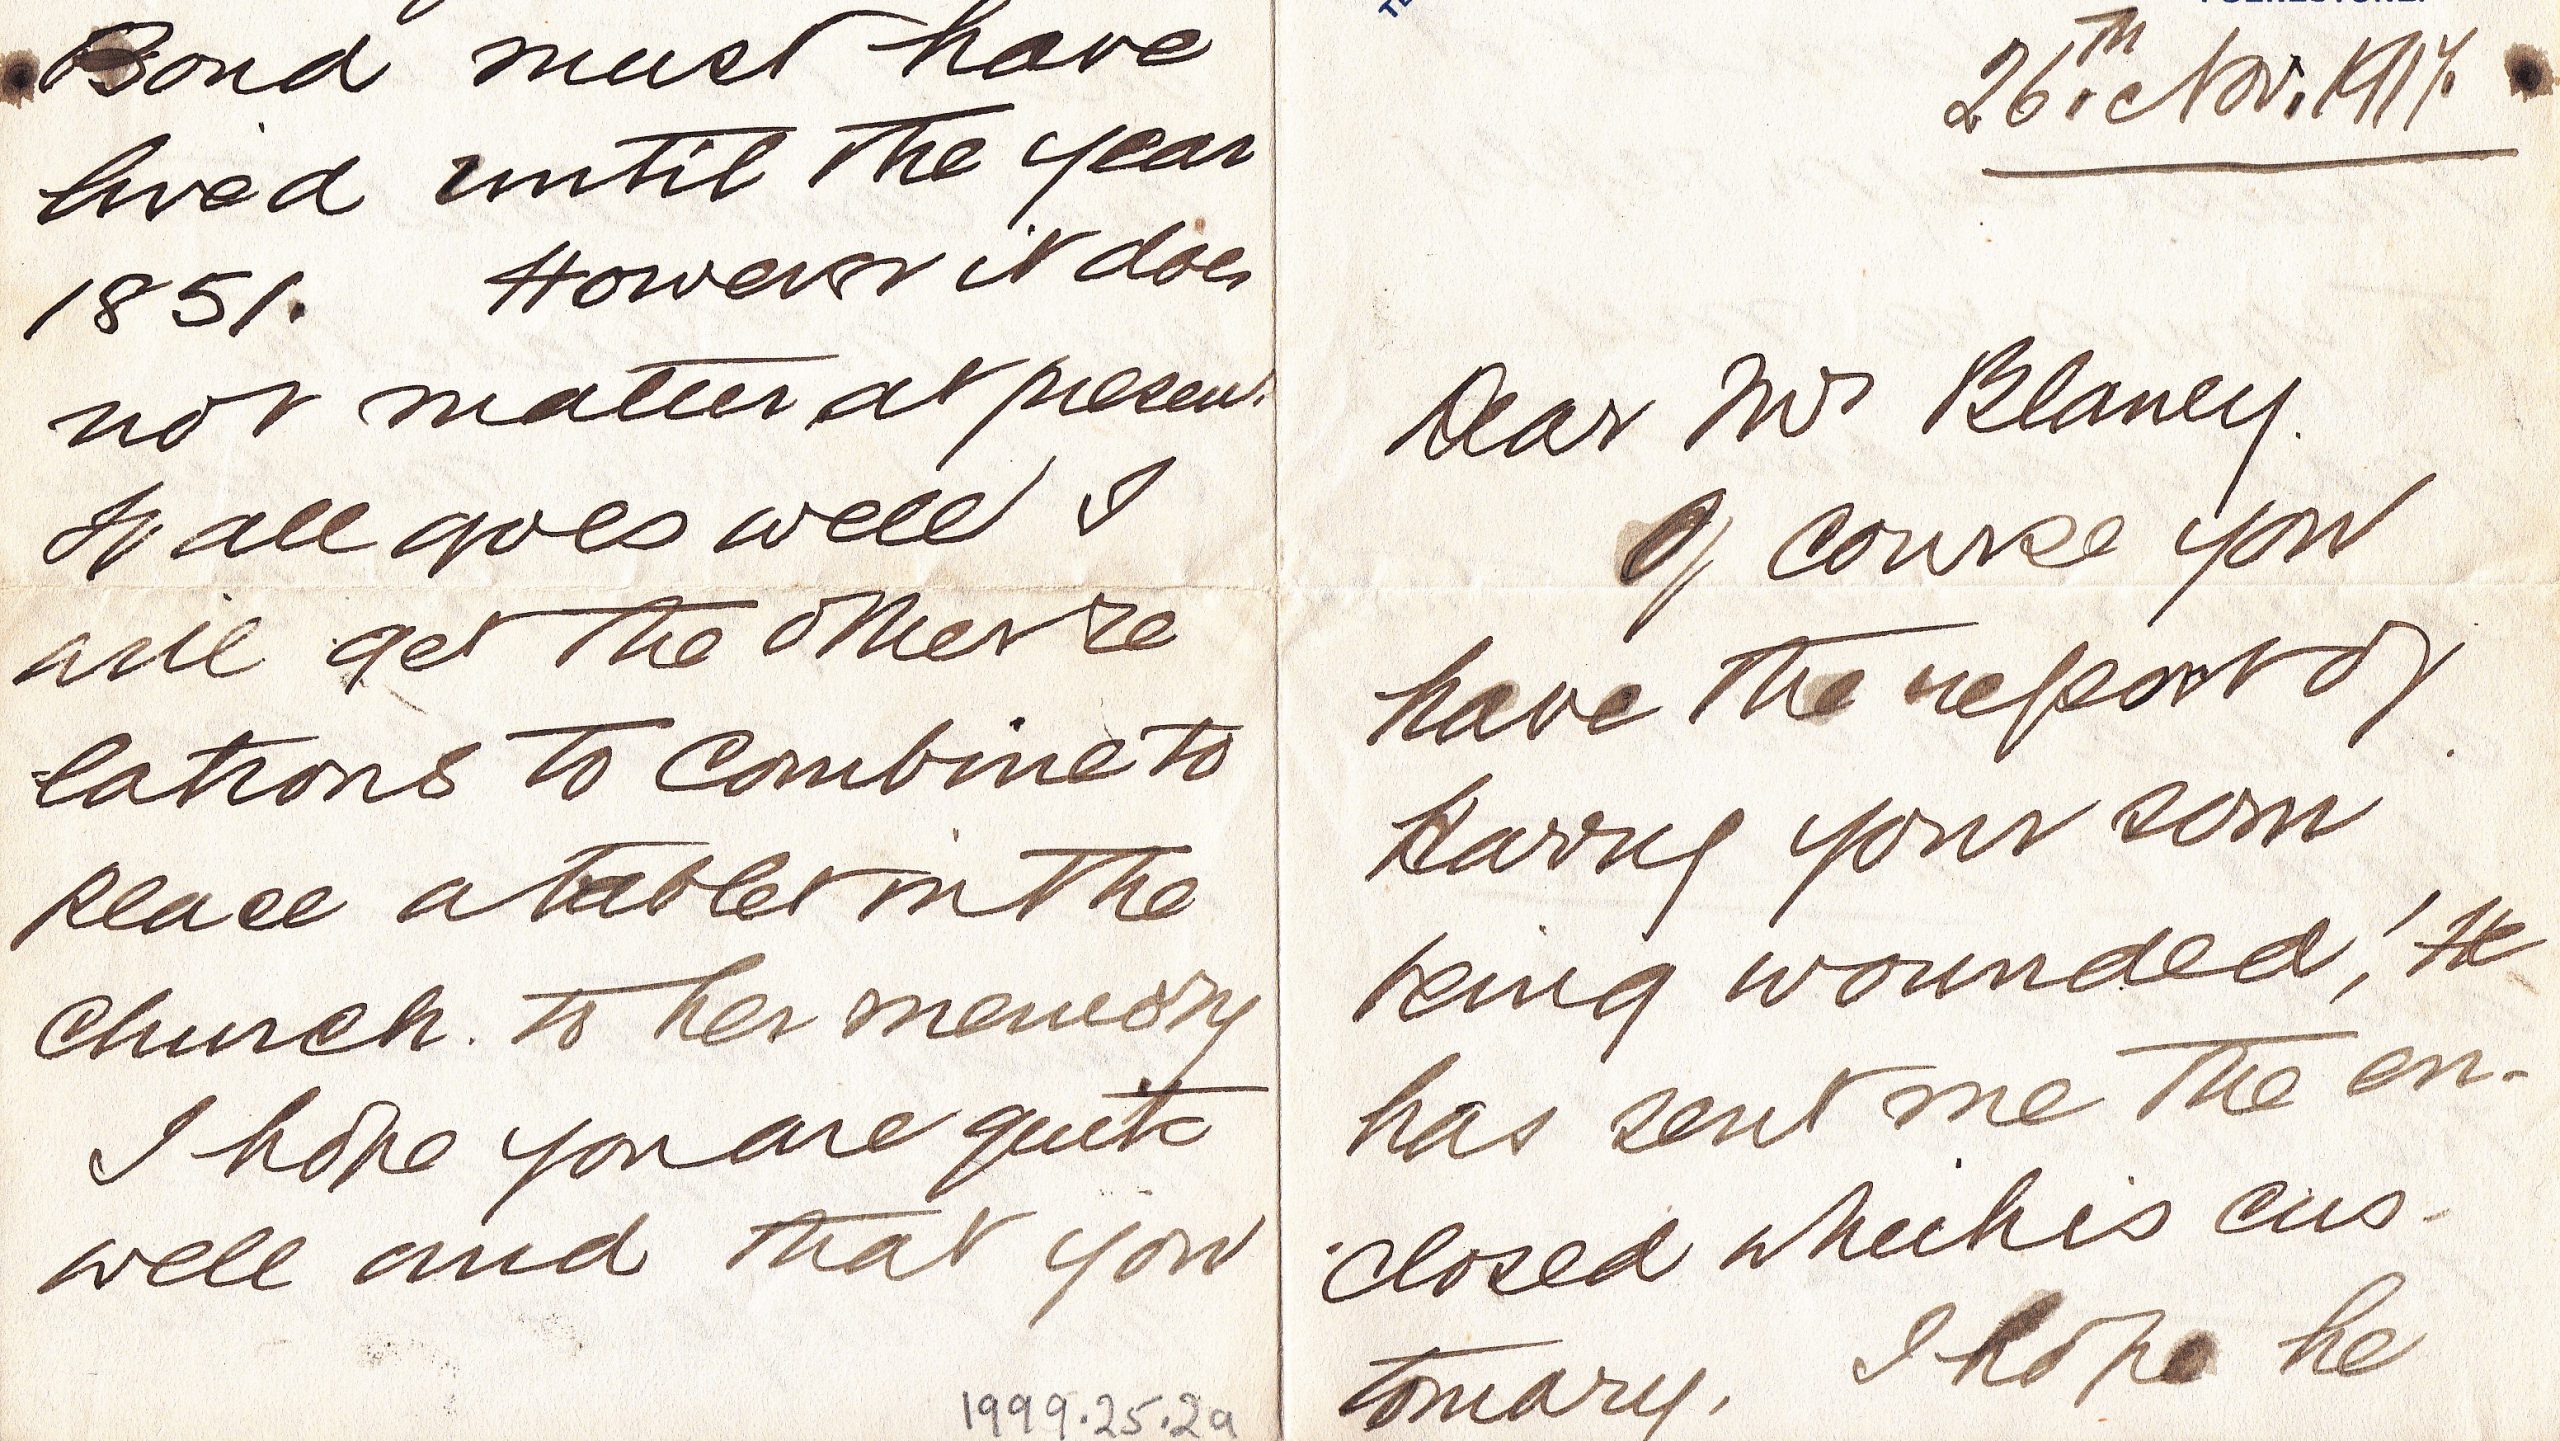 Bond must have
lived until the year
1851. However it does
not matter at present.
If all goes well I
will get the other re
-lations to combine to
place a tablet in the
Church. to her memory
I hope you are quite
well and that you
1999.25.2a
26th. Nov. 1917.
Dear Mrs Blaney.
Of course you
have the report of
Harry your son
being wounded! He
has sent me the en-
closed which is cus-
tomary. I hope he